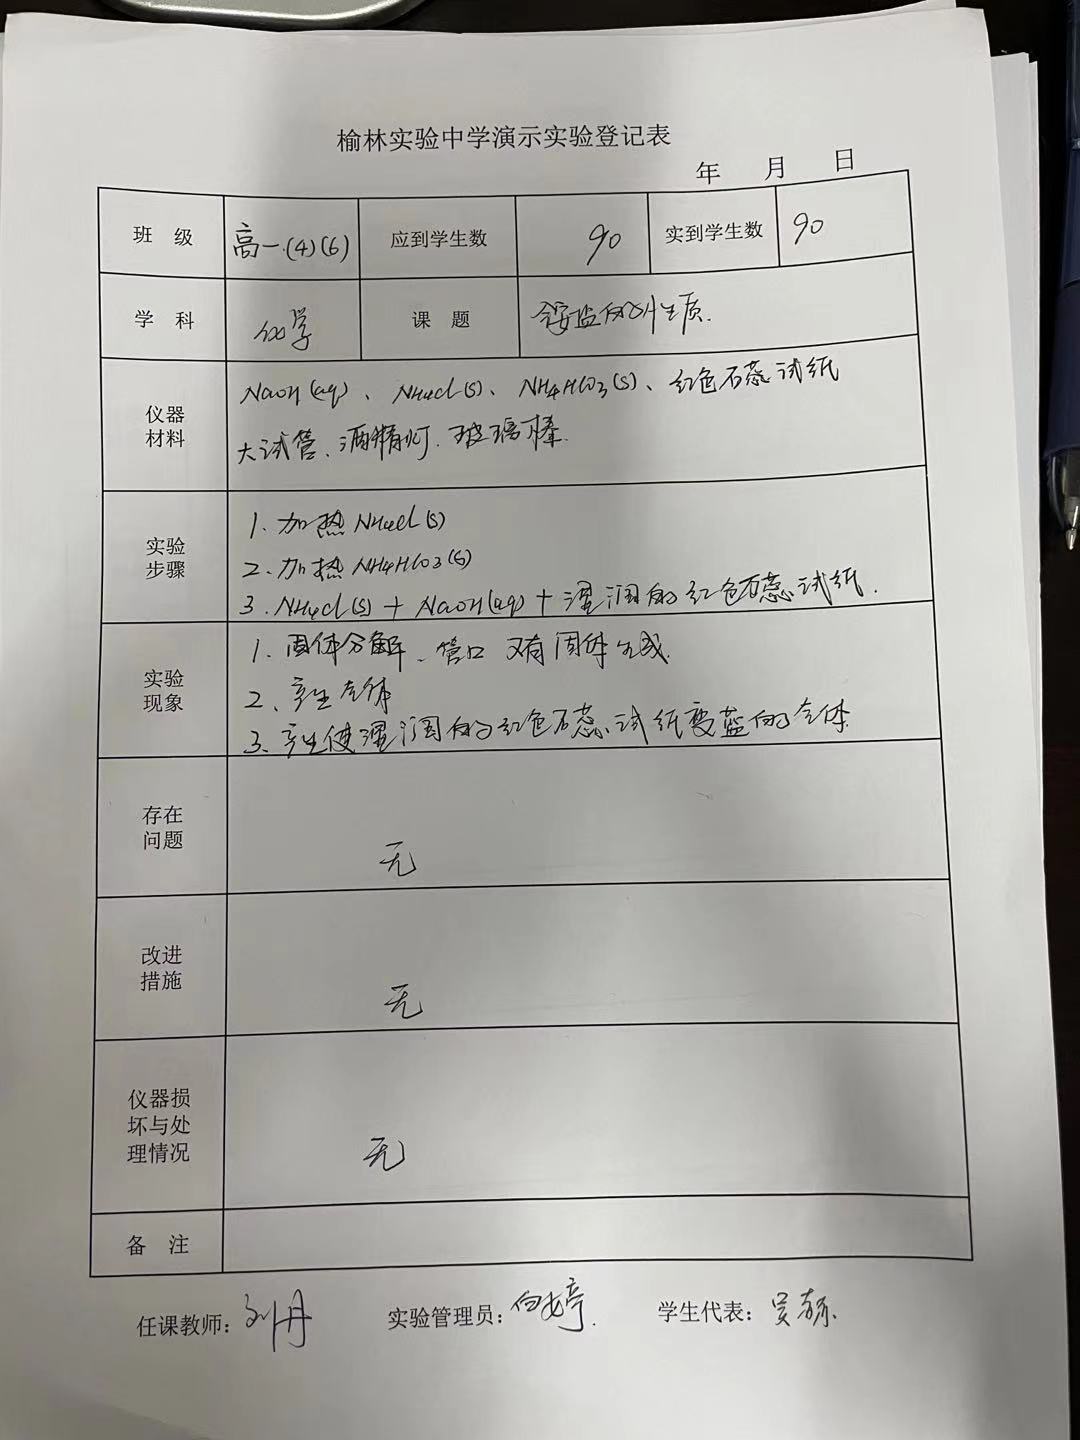 榆林实验中学演示实验登记表
年 月 日
班 级 高一(4)(6) 应到学生数 90 实到学生数 90
学 科 化学 课 题 铵盐的性质.
仪器
材料
NaOH(aq)、NH4Cl(s)、NH4HCO3(s)、红色石蕊试纸
大试管、酒精灯.玻璃棒.
实验
步骤
1.加热NH4Cl(s)
2.加热NH4HCO3(s)
3.NH4Cl(s)+NaOH(aq)+湿润的红色石蕊试纸.
实验
现象
1.固体分解、管口又有固体生成.
2、产生气体
3、产生使湿润的红色石蕊试纸变蓝的气体.
存在
问题
无
改进
措施
无
仪器损
坏与处
理情况
无
备 注
任课教师:刘丹 实验管理员: 学生代表: